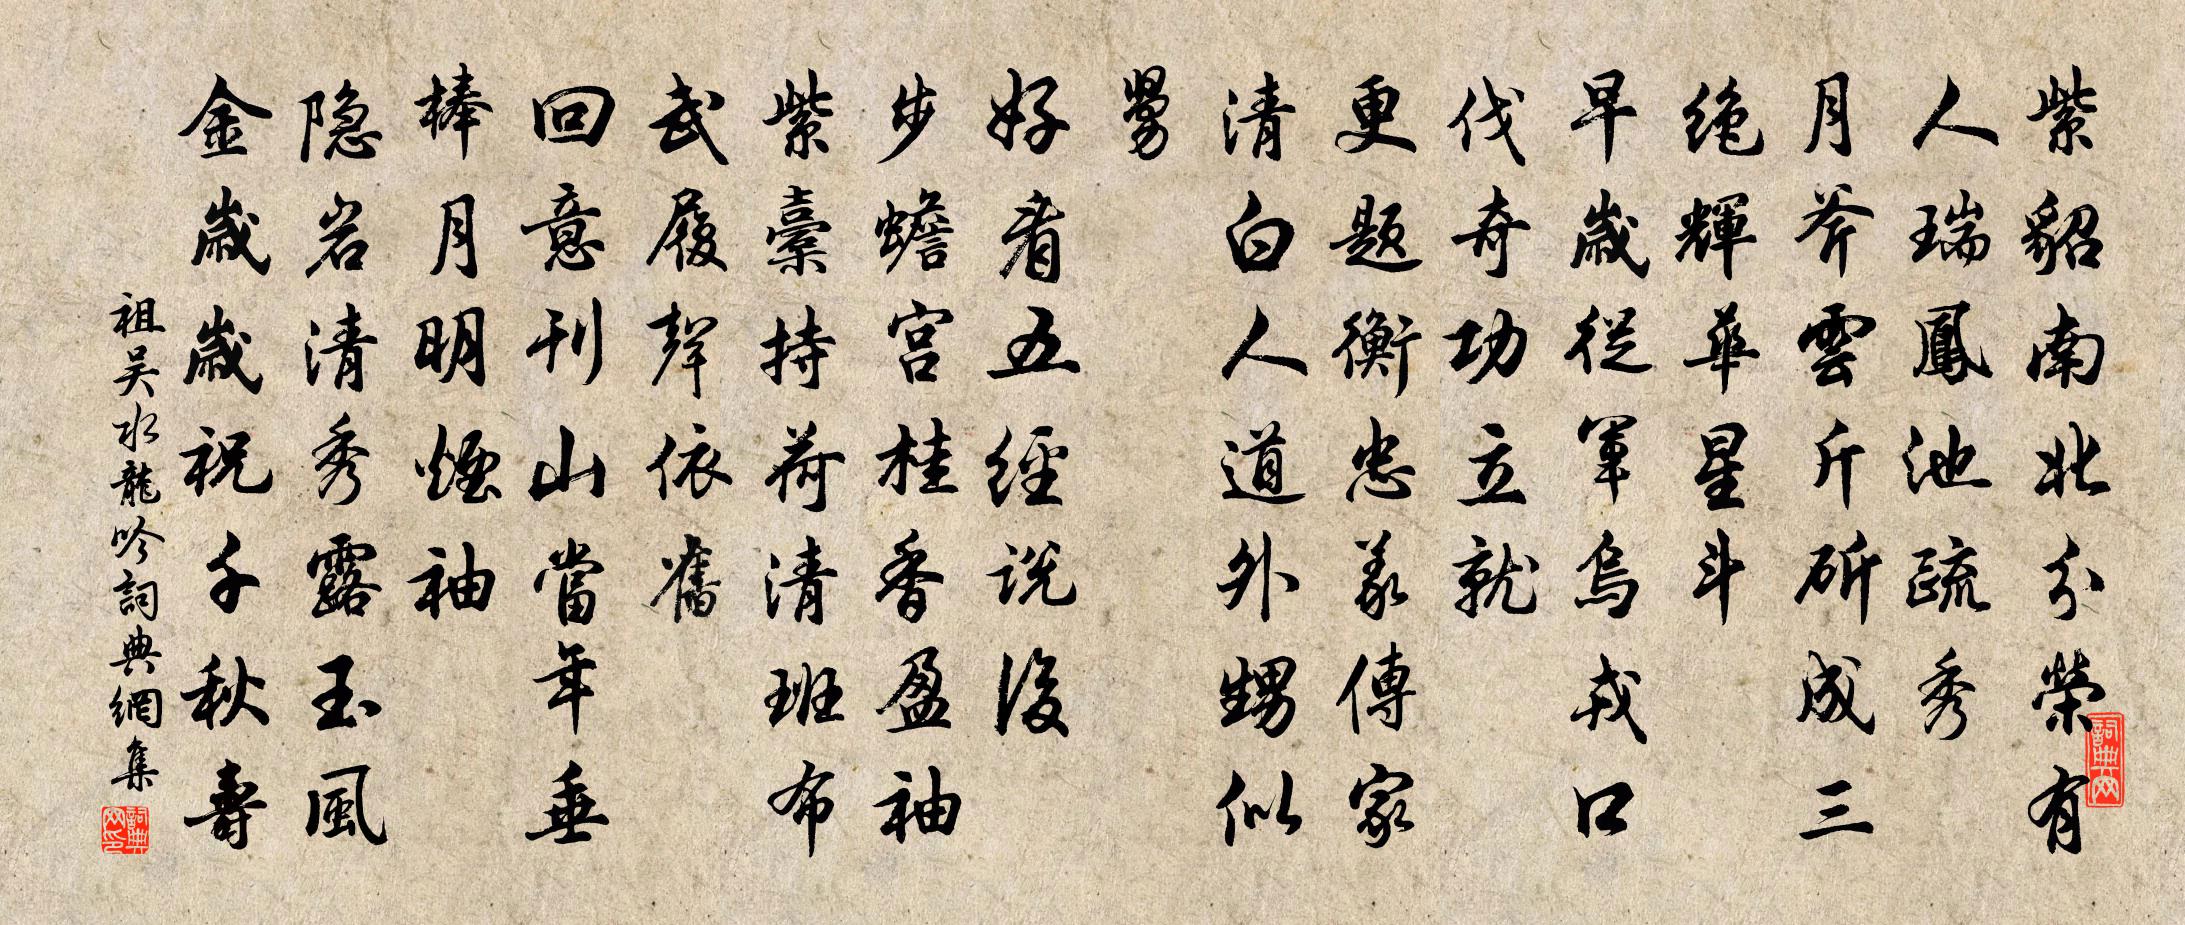 紫貂南北分榮有
人瑞鳳池疏秀
月斧雲斤斫成三
絶輝華星斗
早歲從軍烏戎口
伐奇功立就
更題衡忠義傳家
清白人道外甥似
舅
好看五經説後
步蟾宮桂香盈袖
紫橐持荷清班布
武履聲依舊
回意刊山當年垂
棒月明煙袖
隐岩清秀露玉風
金歲歲祝千秋壽
祖吴水龍吟詞典網集
詞典网
詞典网印